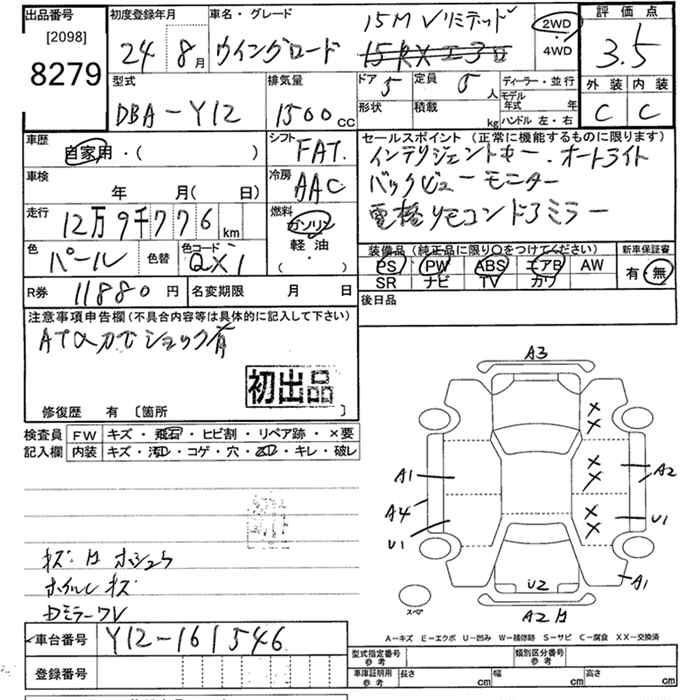 出品番号 初度登録年月 車名・グレード 評価点
[2098]
8279
24年 8月 ウイングロード 15M Vリミテッド 2WD ・ 4WD 3.5
型式 排気量 ドア 5 定員 5人 ディーラー・並行 外装 内装
DBA-Y12 1500cc 形状 積載 kg モデル年式 年 C C
ハンドル 左・右
車歴 シフト セールスポイント (正常に機能するものに限ります)
自家用・( ) FAT. インテリジェントキー.オートライト
車検 冷房 バックビューモニター
年 月( 日) AAC 電格リモコンドアミラー
走行 燃料
12万9千776km ガソリン 装備品(純正品に限り○をつけてください) 新車保証書
色 色コード 軽油 PS PW ABS エアB AW 有・無
パール 色替 QX1 ( ・ ) SR ナビ TV カワ
R券 11880円 名変期限 月 日 後日品
注意事項申告欄(不具合内容等は具体的に記入して下さい)
初出品
修復歴 有 〔箇所 〕
検査員 FW キズ・飛石・ヒビ割・リペア跡・×要
記入欄 内装 キズ・汚レ・コゲ・穴・・キレ・破レ
A3
A1 A2
A4
U1 U1
A1
U2
スペア
A2
ホイルキズ
ドミラー
A-キズ E-エクボ U-凹み W-補修跡 S-サビ C-腐食 XX-交換済
車台番号 Y12-161546
登録番号
型式指定番号 参考 類別区分番号 参考
車庫証明用 参考 長さ cm 幅 cm 高さ cm